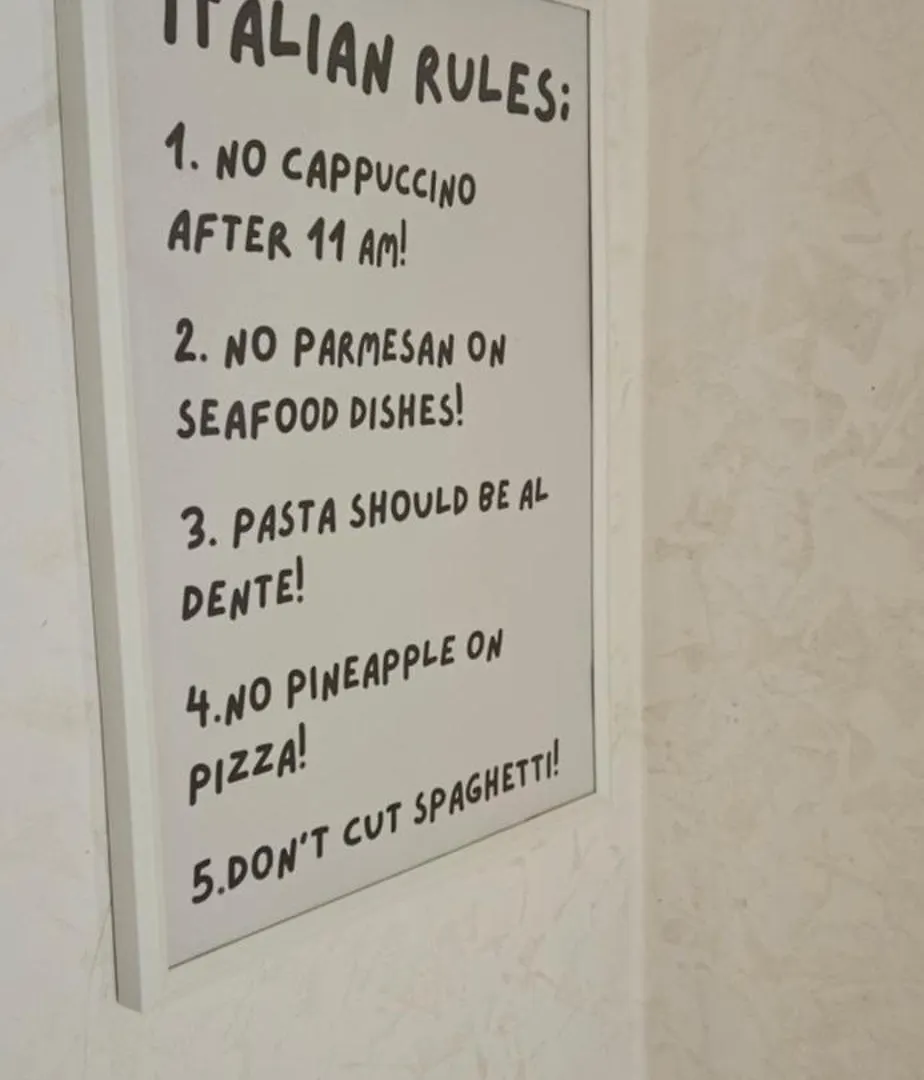 ITALIAN RULES:
1. NO CAPPUCCINO
AFTER 11 AM!
2. NO PARMESAN ON
SEAFOOD DISHES!
3. PASTA SHOULD BE AL
DENTE!
4.NO PINEAPPLE ON
PIZZA!
5.DON'T CUT SPAGHETTI!